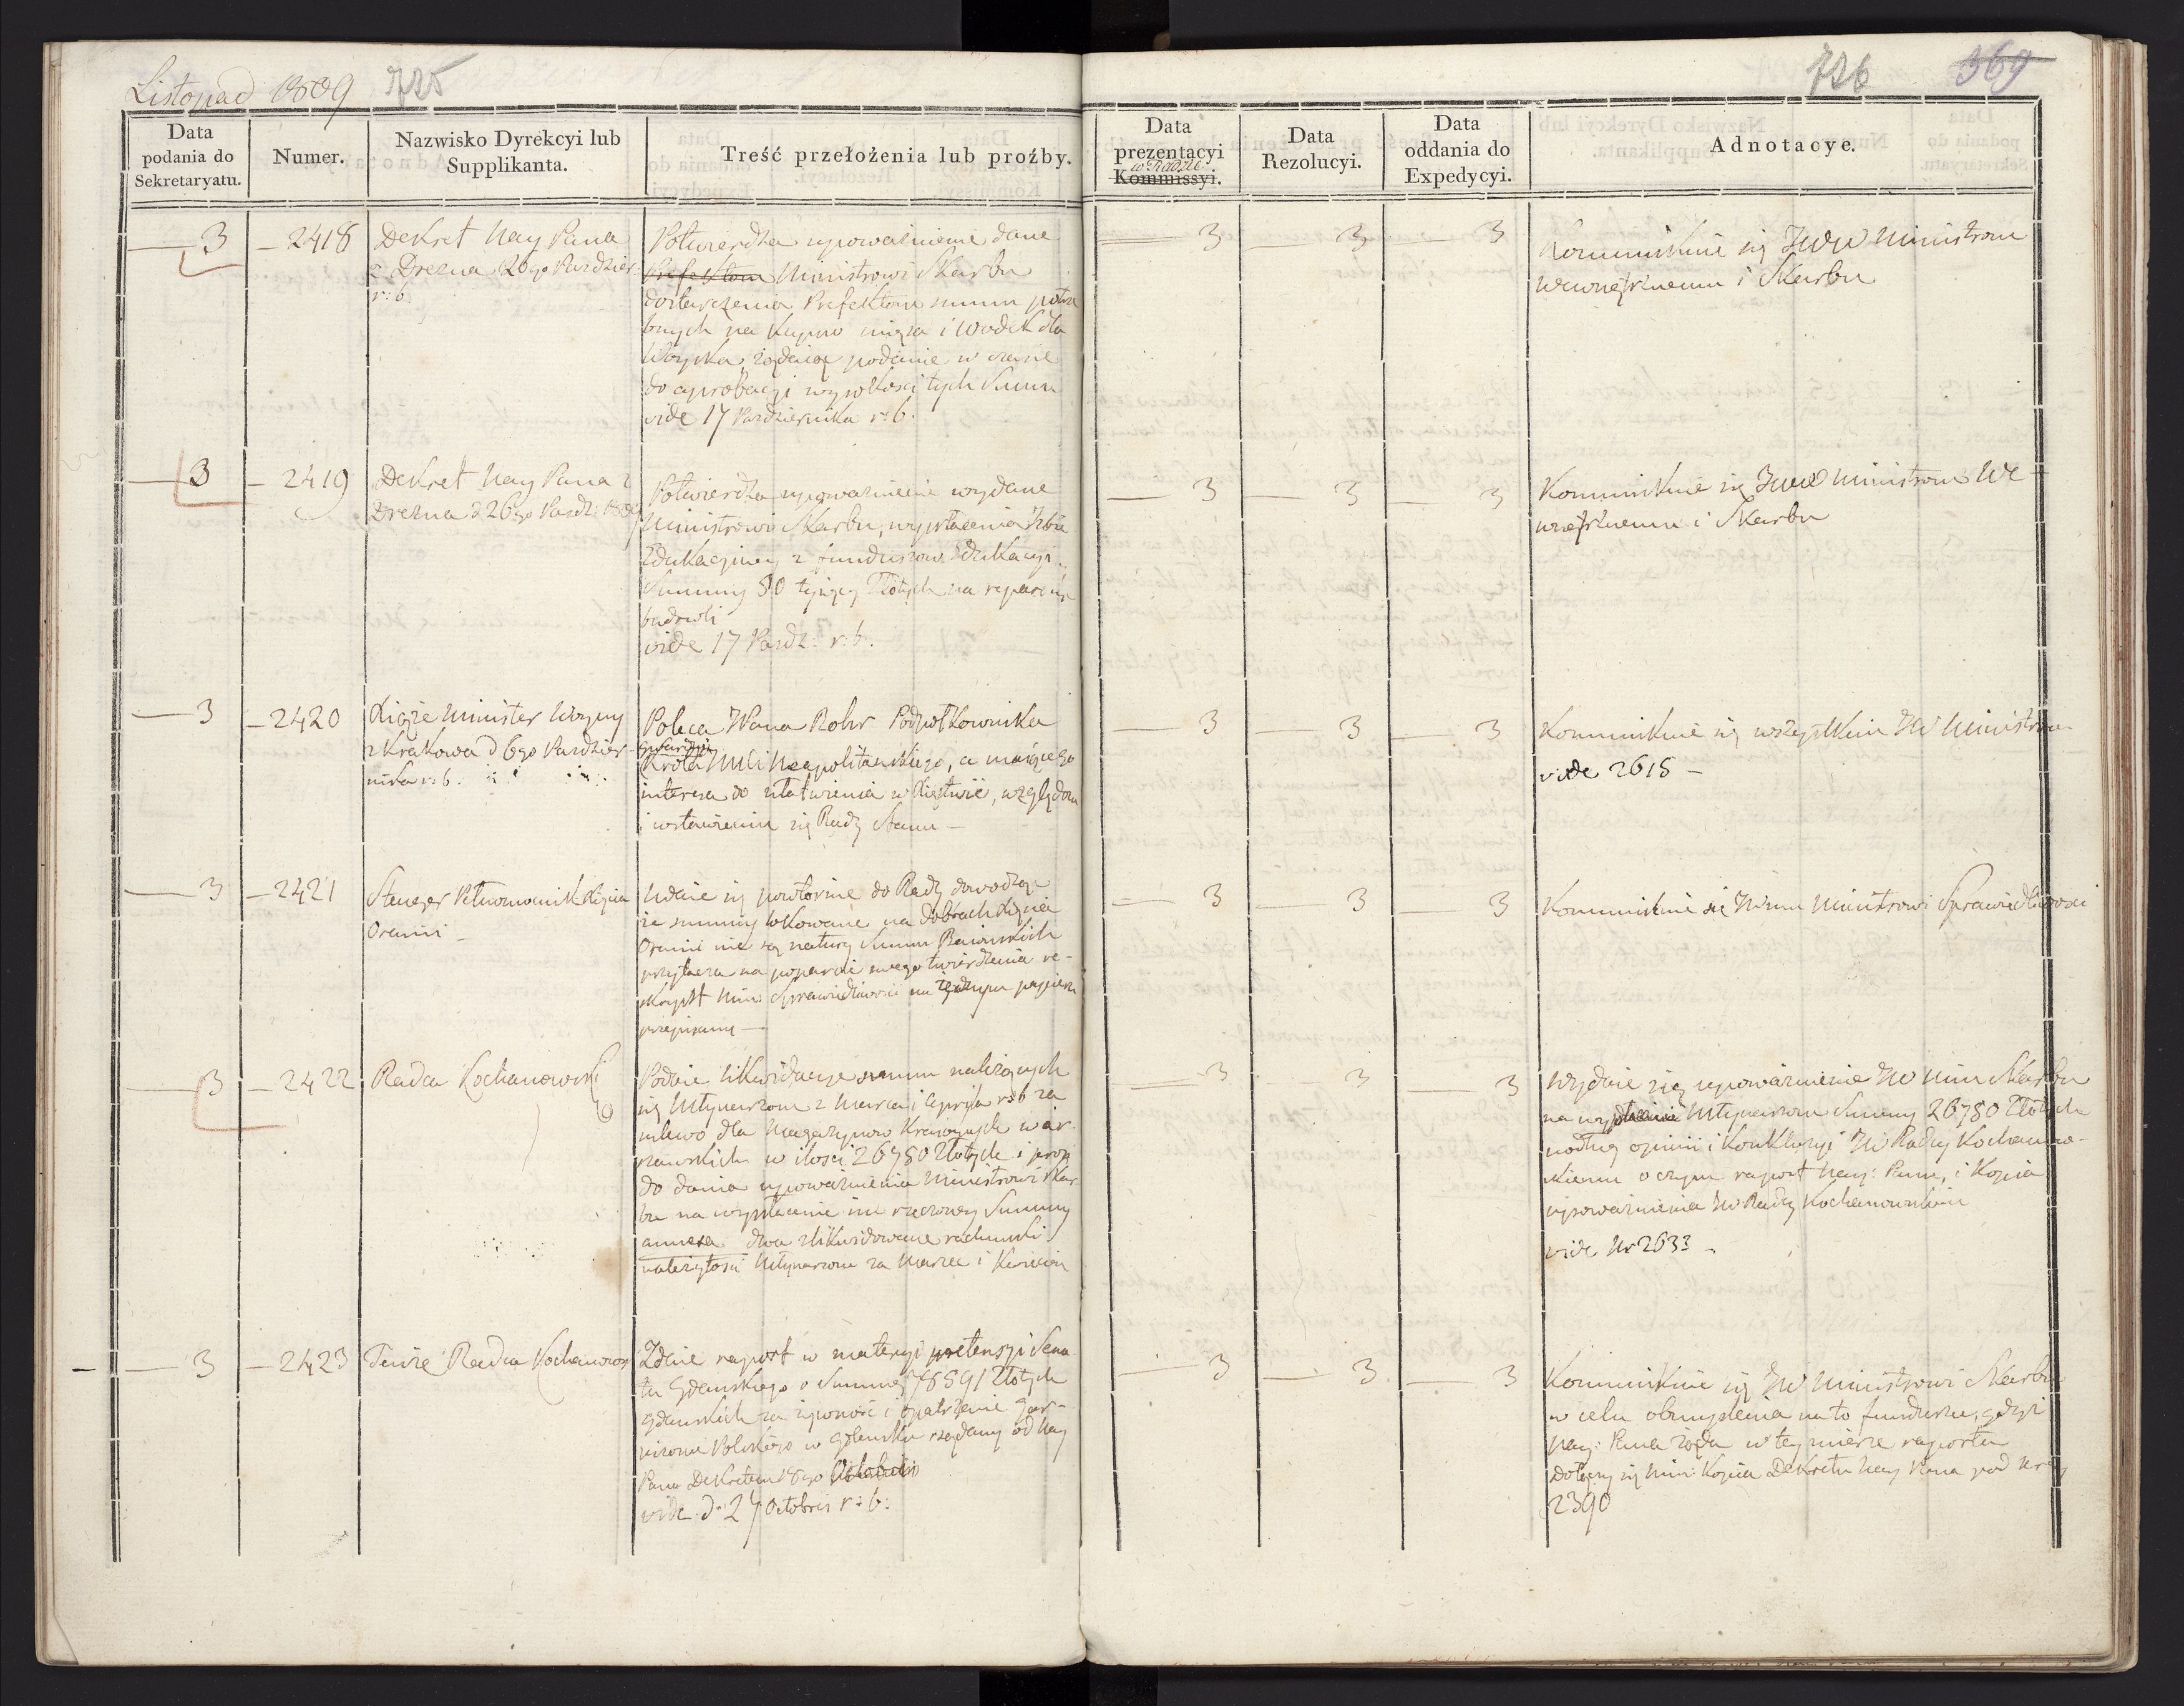 Listopad 1809 725
726 369
Data podania do Sekretaryatu.
Numer.
Nazwisko Dyrekcyi lub Supplikanta.
Treść przełożenia lub proźby.
Data prezentacyi w Radzie Kommissyi.
Data Rezolucyi.
Data oddania do Expedycyi.
Adnotacye.
3
2418
Dekret Nay Pana
z Drezna 26go Paździer:
r: b:
Potwierdza upoważnienie dane
Prefektom Ministrowi Skarbu
dostarczenia Prefektom summ potrze
bnych na kupno mięsa i wódek dla
Woyska, żądaiąc podanie w czasie
do approbacyi wysokości tych Summ
vide 17 Października r: b.
3
3
3
Kommunikuie się JWW Ministrom
Wewnętrznemu i Skarbu
3
2419
Dekret Nay Pana z
Drezna d 26go Paźdz: 1809
Potwierdza upoważnienie wydane
Ministrowi Skarbu, wypłacenia Izbie
Edukacyiney z funduszow Edukacyi
Summy 30 tysięcy Złotych na reparacye
budowli
vide 17 Paźdz: r: b:
3
3
3
Kommunikuie się JWW Ministrom We-
wnętrznemu i Skarbu
3
2420
Xiąże Minister Woyny
z Krakowa d 6go Paździer-
nika r: b.
Poleca Pana Rohr Podpołkownika
Gwardyi
Króla JMCi Neapolitańskiego, a maiącego
interesa do ułatwienia w Xięstwie, względom
i wstawieniu się Rady Stanu —
3
3
3
Kommunikuie się wszystkim JW Ministrom
vide 2615 —
3
2421
Stenger Pełnomocnik Xięcia
Oranii —
Udaie się powtórnie do Rady dowodząc
że summy lokowane na Dobrach Xięcia
Oranii nie są natury Summ Baiońskich
przytacza na poparcie swego twierdzenia re-
skrypt Min Sprawiedliwości na iednym papierze
przepisany —
3
3
3
Kommunikuie się JWmu Ministrowi Sprawiedliwości
3
2422
Radca Kochanowski
Podaie likwidacye summ należących
się Młynarzom z Marca i Aprila r: b za
mlewo dla Magazynow Kraiowych war-
szawskich w ilości 26780 Złotych i prosi
do dania upoważnienia Ministrowi Skar-
bu na wypłacenie im rzeczoney Summy
annexa dwa zlikwidowane rachunki
należytości Młynarzom za Marzec i Kwiecień
3
3
3
Wydaie się upoważnienie JW Min Skarbu
na wypłacenie Młynarzom Summy 26780 Złotych
według opinii i Konkluzyi JW Radcy Kochanow-
skiemu o czym raport Nay: Panu, i Kopia
upoważnienia JW Radcy Kochanowskim
vide Nr 2633
3
2423
Tenże Radca Kochanows
Zdaie raport w materyi pretensyi Sena
tu Gdańskiego o Summę 78591 Złotych
gdańskich za żywność i opatrzenie gar-
nizonu Polskiego w Gdańsku żądany od Nay
Pana Dekretem 18go
vide d: 27 Octobris r: b:
3
3
3
Kommunikuie się JW Ministrowi Skarbu
w celu obmyślenia na to funduszu, gdyż
Nay: Pana żąda w tey mierze raportu
Dołączy się Min: Kopia Dekretu Nay Pana pod Nrem
2390